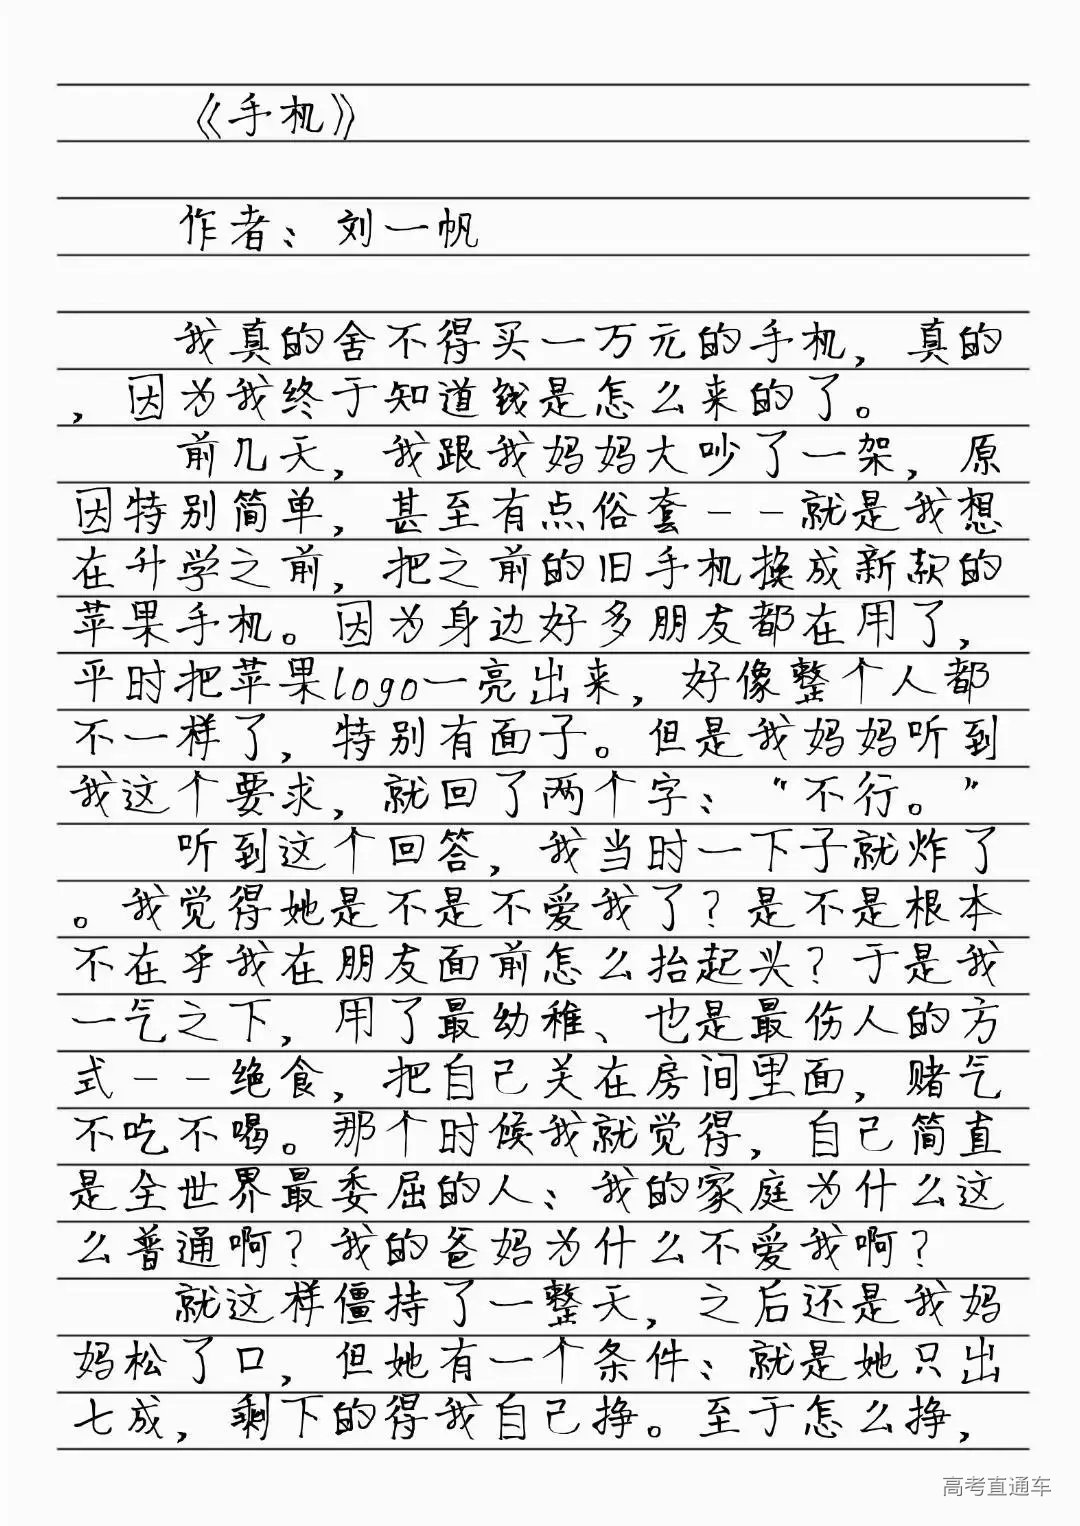 《手机》
作者：刘一帆
我真的舍不得买一万元的手机，真的
，因为我终于知道钱是怎么来的了。
前几天，我跟我妈妈大吵了一架，原
因特别简单，甚至有点俗套--就是我想
在升学之前，把之前的旧手机换成新款的
苹果手机。因为身边好多朋友都在用了，
平时把苹果logo一亮出来，好像整个人都
不一样了，特别有面子。但是我妈妈听到
我这个要求，就回了两个字："不行。"
听到这个回答，我当时一下子就炸了
。我觉得她是不是不爱我了？是不是根本
不在乎我在朋友面前怎么抬起头？于是我
一气之下，用了最幼稚、也是最伤人的方
式--绝食，把自己关在房间里面，赌气
不吃不喝。那个时候我就觉得，自己简直
是全世界最委屈的人：我的家庭为什么这
么普通啊？我的爸妈为什么不爱我啊？
就这样僵持了一整天，之后还是我妈
妈松了口，但她有一个条件：就是她只出
七成，剩下的得我自己挣。至于怎么挣，
高考直通车